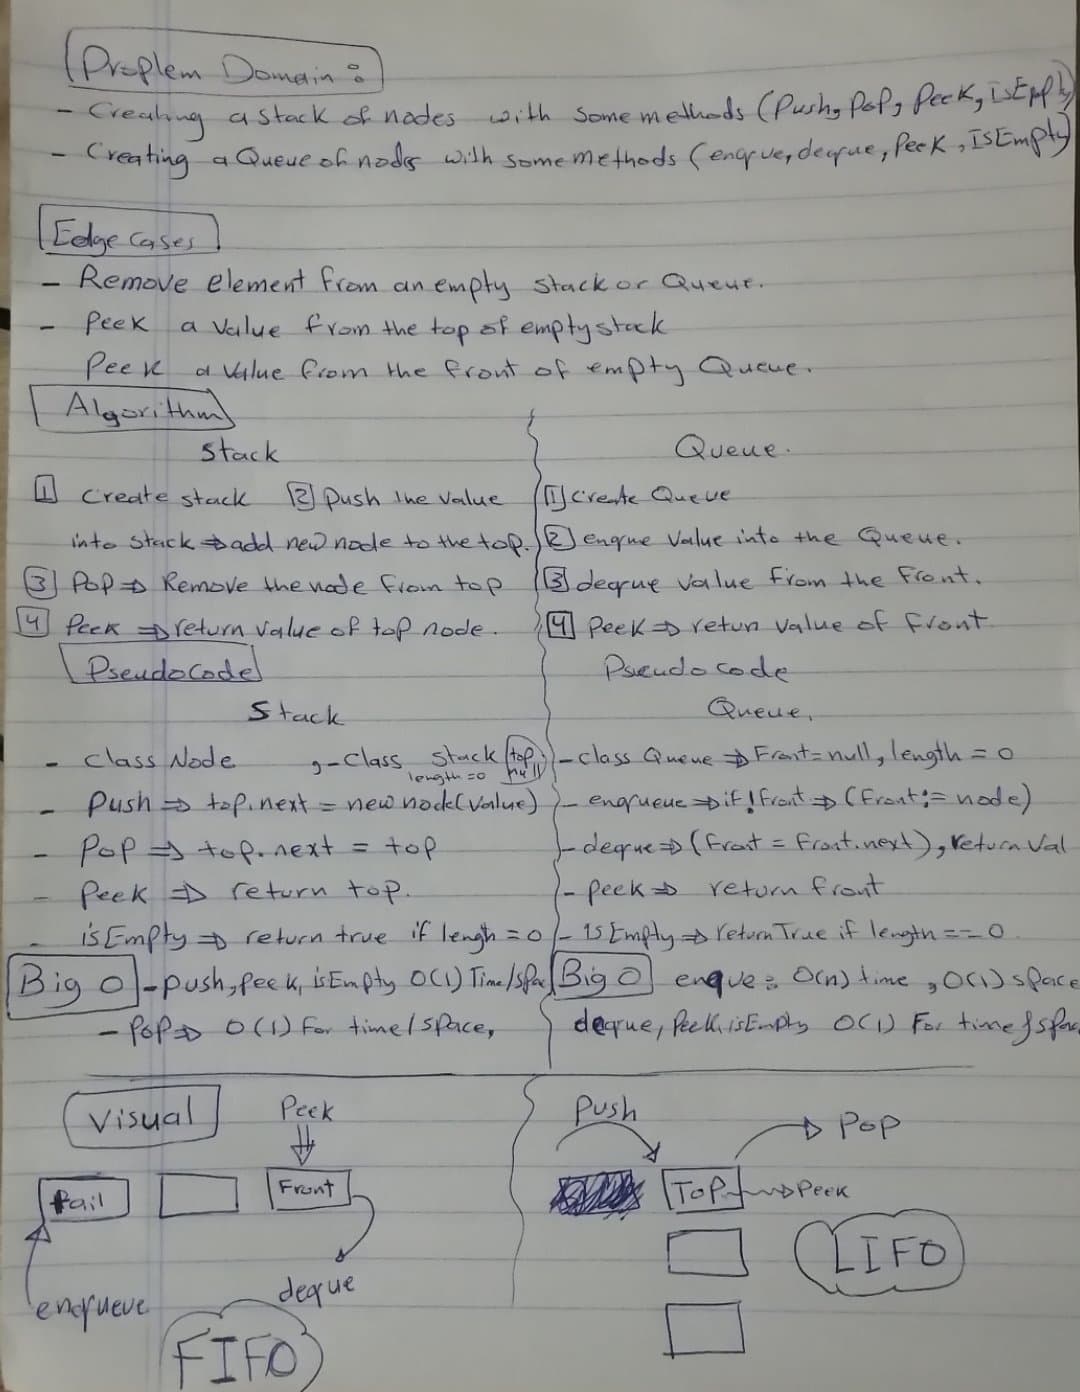 Proplem Domain :
- Creating a stack of nodes with some methods (Push, Pop, Peek, isEmpty)
- Creating a Queue of nodes with some methods (enqrue, deqrue, Peek, IsEmpty)
Edge Cases
- Remove element from an empty stack or Queue.
- Peek a value from the top of empty stack
Peek a value from the front of empty Queue.
Algorithm
Stack
1 Create stack 2 Push the value
into stack ⇒ add new node to the top.
3 Pop ⇒ Remove the node from top
4 Peek ⇒ return value of top node.
Queue.
1 Create Queue
2 enqrue value into the Queue.
3 deqrue value from the front.
4 Peek ⇒ retun value of front
PseudoCode
Stack
- Class Node , - Class Stack top null
length = 0
- Push ⇒ top.next = new nock(value)
- Pop ⇒ top.next = top
- Peek ⇒ return top.
- isEmpty ⇒ return true if lengh = 0
Pseudo code
Queue,
- class Queue ⇒ Front = null, length = 0
- enqrueue ⇒ if !front ⇒ (Front := node)
- deqrue ⇒ (Front = Front.next), return val
- Peek ⇒ return front
- IsEmpty ⇒ return True if length == 0
Big O - push, peek, isEmpty O(1) Time/spac
- Pop ⇒ O(1) for time/space,
Big O enque : O(n) time , O(1) space
deqrue, Peek, isEmpty O(1) For time & space
Visual
Peek
tail Front
enqrueue deque
FIFO
Push Pop
Top ⇒ Peek
LIFO